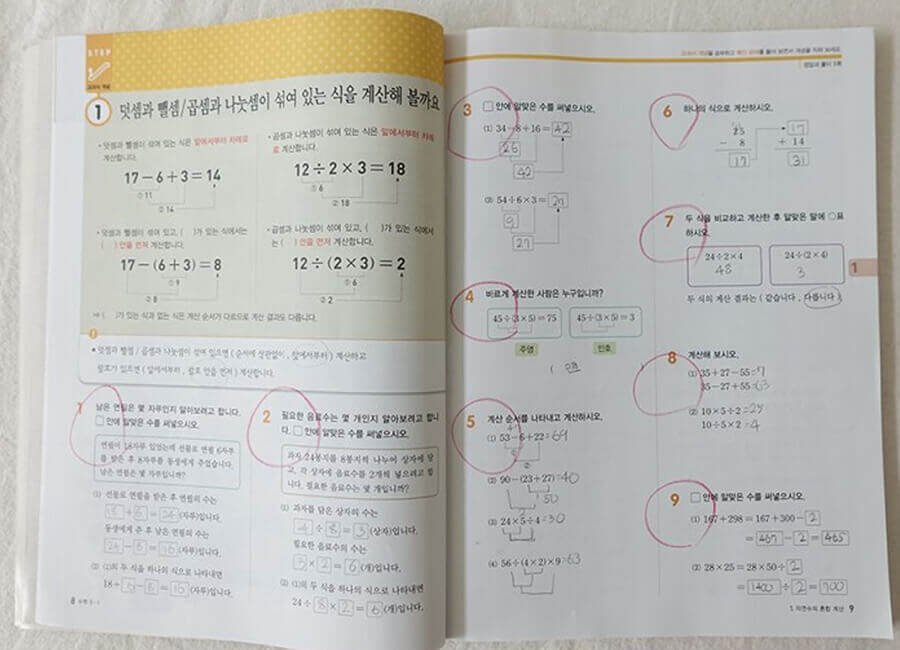 STEP
교과서 개념
1 덧셈과 뺄셈/곱셈과 나눗셈이 섞여 있는 식을 계산해 볼까요
• 덧셈과 뺄셈이 섞여 있는 식은 앞에서부터 차례로
계산합니다.
17－6＋3＝14
① 11
② 14
• 곱셈과 나눗셈이 섞여 있는 식은 앞에서부터 차례
로 계산합니다.
12÷2×3＝18
① 6
② 18
• 덧셈과 뺄셈이 섞여 있고, ( )가 있는 식에서는
( ) 안을 먼저 계산합니다.
17－(6＋3)＝8
① 9
② 8
• 곱셈과 나눗셈이 섞여 있고, ( )가 있는 식에서
는 ( ) 안을 먼저 계산합니다.
12÷(2×3)＝2
① 6
② 2
⇨ ( )가 있는 식과 없는 식은 계산 순서가 다르므로 계산 결과도 다릅니다.
• 덧셈과 뺄셈 / 곱셈과 나눗셈이 섞여 있으면 ( 순서에 상관없이 , 앞에서부터 ) 계산하고
괄호가 있으면 ( 앞에서부터 , 괄호 안을 먼저 ) 계산합니다.
1 남은 연필은 몇 자루인지 알아보려고 합니다.
□ 안에 알맞은 수를 써넣으시오.
연필이 18자루 있었는데 선물로 연필 6자루
를 받은 후 8자루를 동생에게 주었습니다.
남은 연필은 몇 자루입니까?
(1) 선물로 연필을 받은 후 연필의 수는
18＋6＝24(자루)입니다.
동생에게 준 후 남은 연필의 수는
24－8＝16(자루)입니다.
(2) (1)의 두 식을 하나의 식으로 나타내면
18＋6－8＝16(자루)입니다.
2 필요한 음료수는 몇 개인지 알아보려고 합니
다. □ 안에 알맞은 수를 써넣으시오.
과자 24봉지를 8봉지씩 나누어 상자에 담
고, 각 상자에 음료수를 2개씩 넣으려고 합
니다. 필요한 음료수는 몇 개입니까?
(1) 과자를 담은 상자의 수는
÷8＝3(상자)입니다.
필요한 음료수의 수는
3×2＝6(개)입니다.
(2) (1)의 두 식을 하나의 식으로 나타내면
24÷8×2＝6(개)입니다.
8 수학 5-1
교과서 개념을 공부하고 확인 문제를 풀어 보면서 개념을 익혀 보세요.
정답과 풀이 1쪽
3 □ 안에 알맞은 수를 써넣으시오.
(1) 34－8＋16＝42
26
42
(2) 54÷6×3＝27
9
27
4 바르게 계산한 사람은 누구입니까?
45÷(3×5)＝75
45÷(3×5)＝3
주영
민호
( 민호 )
5 계산 순서를 나타내고 계산하시오.
(1) 53－6＋22＝69
(2) 90－(23＋27)＝40
50
(3) 24×5÷4＝30
(4) 56÷(4×2)×9＝63
6 하나의 식으로 계산하시오.
25
－ 8
17
17
＋ 14
31
7 두 식을 비교하고 계산한 후 알맞은 말에 ○표
하시오.
24÷2×4
48
24÷(2×4)
3
두 식의 계산 결과는 ( 같습니다 , 다릅니다 ).
1
8 계산해 보시오.
(1) 35＋27－55＝7
35－27＋55＝63
(2) 10×5÷2＝25
10÷5×2＝4
9 □ 안에 알맞은 수를 써넣으시오.
(1) 167＋298＝167＋300－2
＝467－2＝465
(2) 28×25＝28×50÷2
＝1400÷2＝700
1. 자연수의 혼합 계산 9